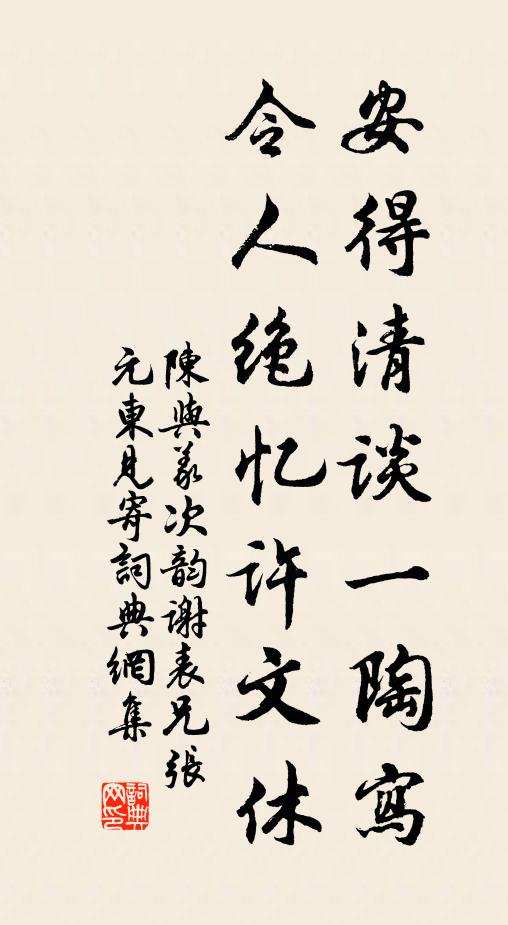 安得清談一陶寫
令人绝忆許文休
陳與義次韵謝表兄張
元東見寄詞典網集
詞典
网印